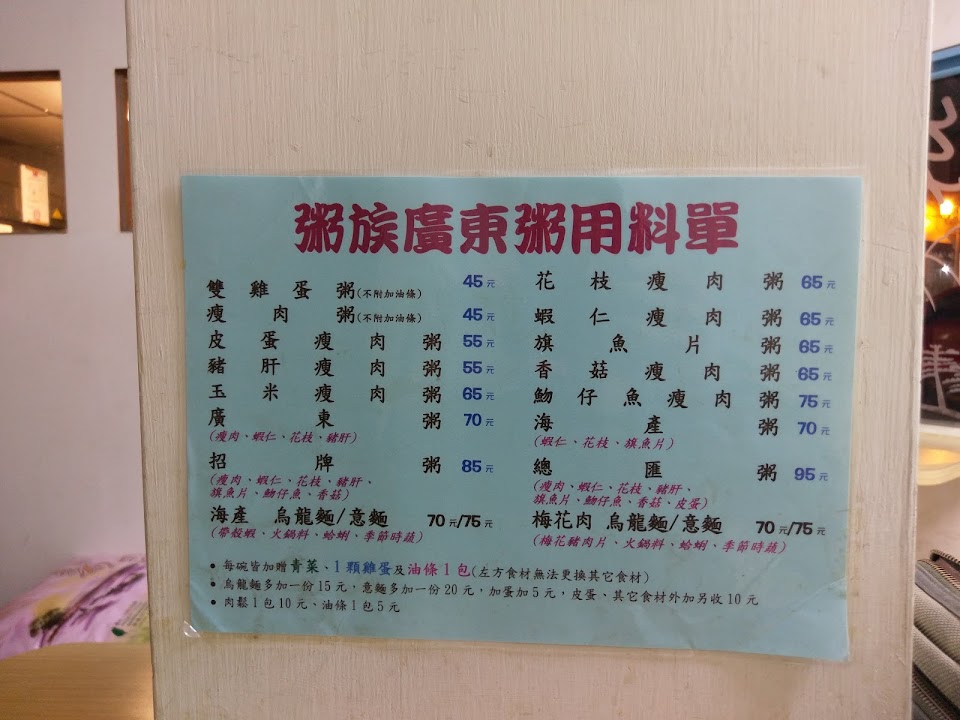 粥族廣東粥用料單
雙雞蛋粥(不附加油條) 45元
瘦肉粥(不附加油條) 45元
皮蛋瘦肉粥 55元
豬肝瘦肉粥 55元
玉米瘦肉粥 65元
廣東粥 70元
(瘦肉、蝦仁、花枝、豬肝)
招牌粥 85元
(瘦肉、蝦仁、花枝、豬肝、
旗魚片、魩仔魚、香菇)
海產 烏龍麵/意麵 70元/75元
(帶殼蝦、火鍋料、蛤蜊、季節時蔬)
花枝瘦肉粥 65元
蝦仁瘦肉粥 65元
旗魚片粥 65元
香菇瘦肉粥 65元
魩仔魚瘦肉粥 75元
海產粥 70元
(蝦仁、花枝、旗魚片)
總匯粥 95元
(瘦肉、蝦仁、花枝、豬肝、
旗魚片、魩仔魚、香菇、皮蛋)
梅花肉 烏龍麵/意麵 70元/75元
(梅花豬肉片、火鍋料、蛤蜊、季節時蔬)
• 每碗皆加贈青菜、1顆雞蛋及油條1包(左方食材無法更換其它食材)
• 烏龍麵多加一份15元，意麵多加一份20元，加蛋加5元，皮蛋、其它食材外加另收10元
• 肉鬆1包10元、油條1包5元